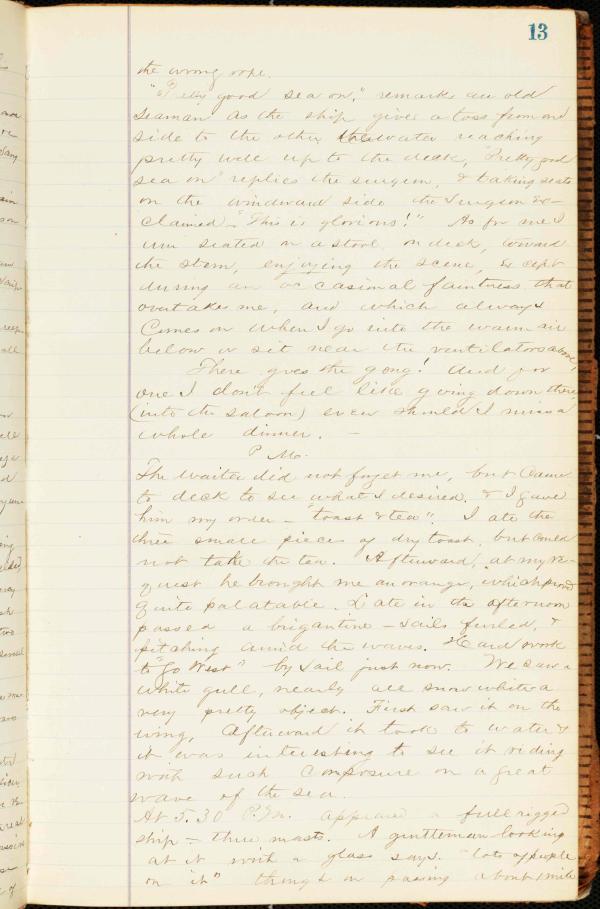 13
the wrong rope.
"Pretty good sea on," remarks an old
seaman as the ship give a toss from one
side to the other the water reaching
pretty well up to the deck, "Pretty good
sea on" replies the surgeon, & taking seats
on the windward side the surgeon ex-
claimed "This is glorious!" As for me I
am seated on a stool on deck, toward
the stern, enjoying the scene, except
during an occasional faintness that
overtakes me, and which always
comes on when I go into the warm air
below or sit near the ventilators above,
There goes the gong! And for
one I don't feel like going down there
(into the saloon) even should I miss a
whole dinner. –
P.M.
The waiter did not forget me, but came
to deck to see what I desired, & I gave
him my order – "toast & tea". I ate the
three small pieces of dry toast, but could
not take the tea. Afterward, at my re-
quest he brought me an orange, which proved
quite palatable. Late in the afternoon
passed a brigantine – sails furled, &
pitching amid the waves. Hard work
to "go West" by sail just now. We saw a
white gull, nearly all snow white a
very pretty object. First saw it on the
wing, Afterward it took to water &
it was interesting to see it riding
with such composure on a great
wave of the sea.
At 5.30 P.M. appeared a full rigged
ship – three masts. A gentleman looking
at it with a glass says. "lots of people
on it" though on passing about 1 mile